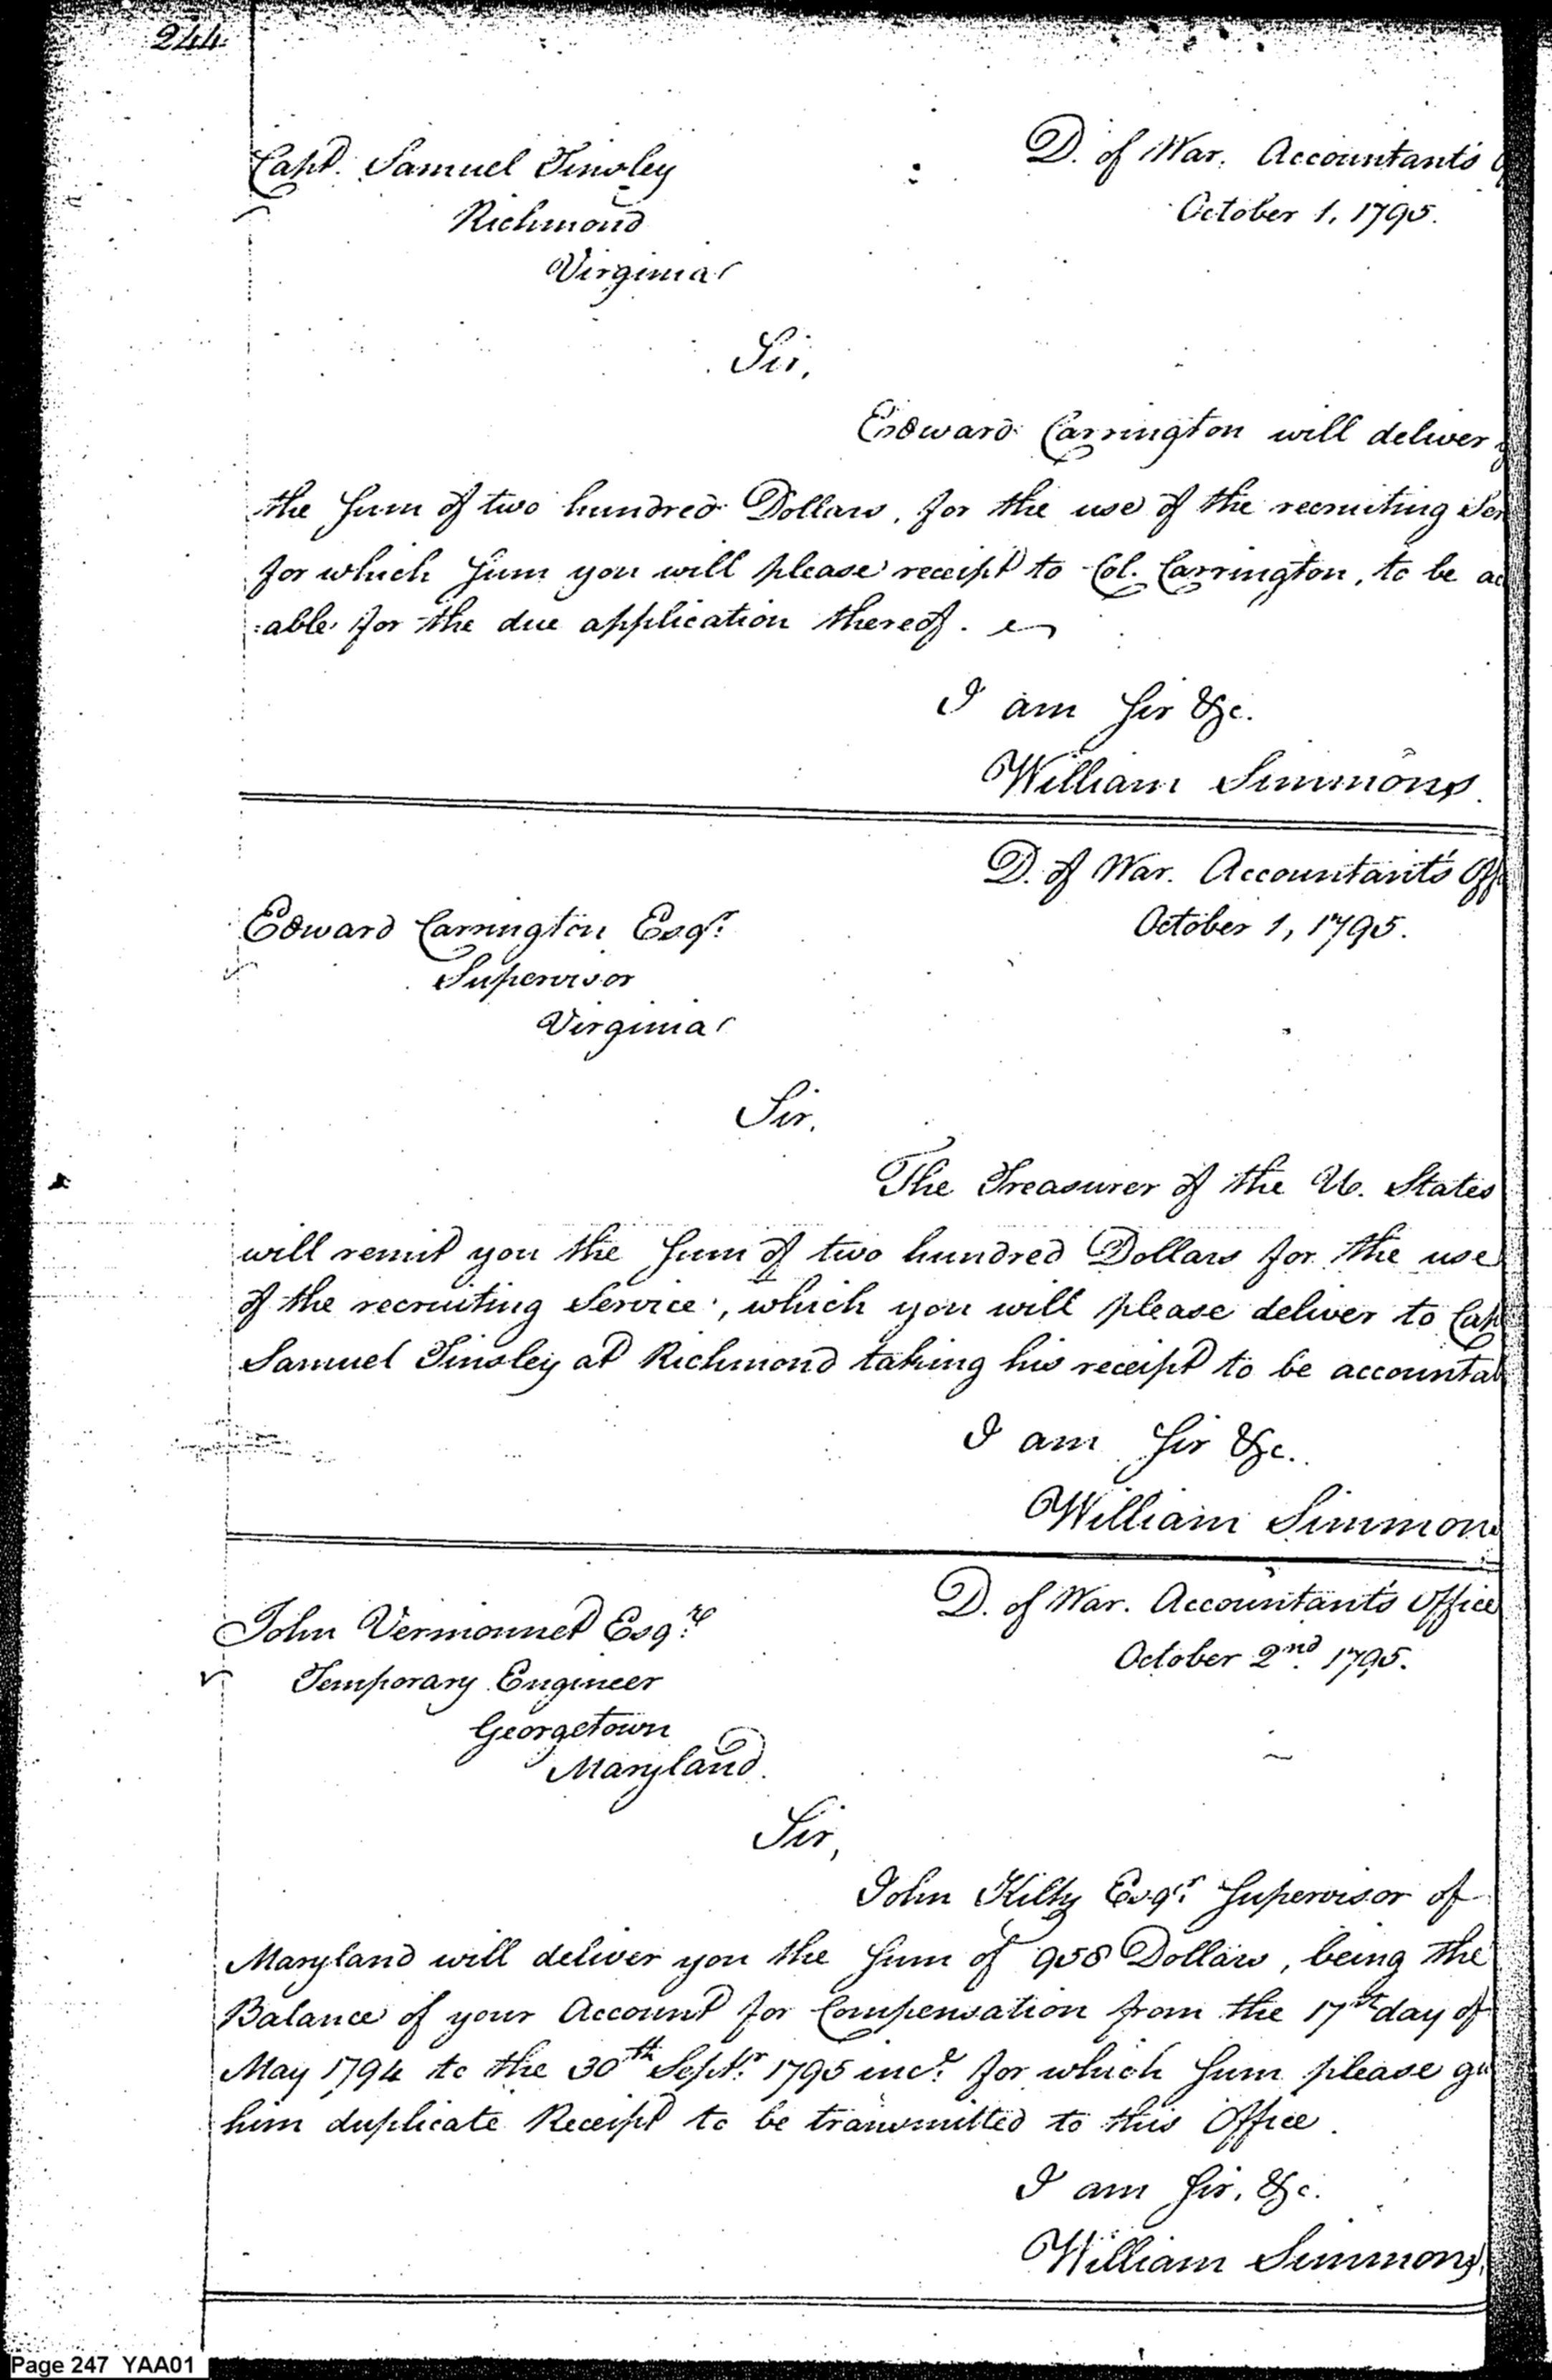 244
Capt. Samuel Tinsley
D. of War. Accountant's
Richmond
October 1, 1795.
Virginia
Sir,
Edward Carrington will deliver
the Sum of two hundred Dollars, for the use of the recruiting Ser
for which Sum you will please receipt to Col. Carrington, to be ac
:able for the due application thereof.
I am Sir &c.
William Simmons.
D. of War. Accountant's Off
Edward Carrington Esqr.
October 1, 1795.
Supervisor
Virginia
Sir,
The Treasurer of the U. States
will remit you the Sum of two hundred Dollars for the use
of the recruiting Service, which you will please deliver to Cap
Samuel Tinsley at Richmond taking his receipt to be accountab
I am Sir &c.
William Simmons
D. of War. Accountant's Office
John Vermonnet Esqre.
October 2nd. 1795.
Temporary Engineer
Georgetown
Maryland.
Sir,
John Kilty Esqr. Supervisor of
Maryland will deliver you the Sum of 958 Dollars, being the
Balance of your Account for Compensation from the 17th day of
May 1794 to the 30th Septr. 1795 ince. for which Sum please gi
him duplicate Receipt to be transmitted to this Office.
I am Sir, &c.
William Simmons,
Page 247 YAA01